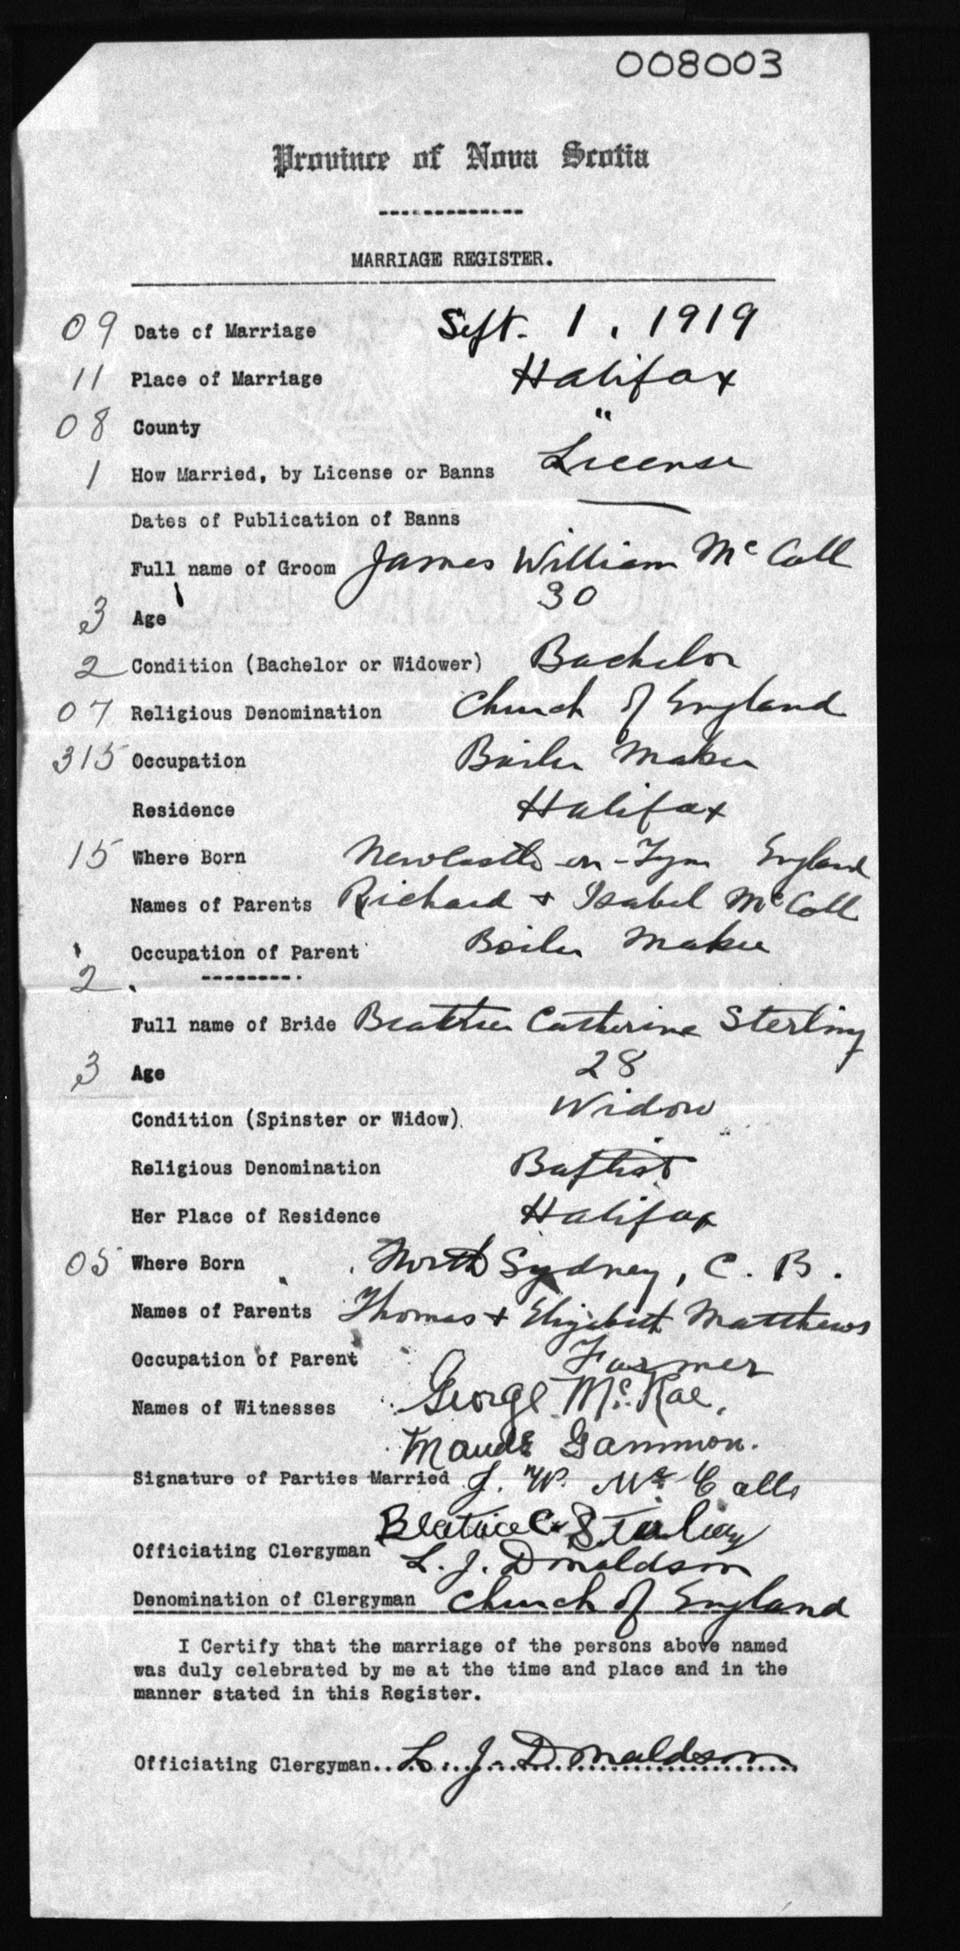 008003
Province of Nova Scotia
MARRIAGE REGISTER.
09 Date of Marriage Sept. 1, 1919
11 Place of Marriage Halifax
08 County "
1 How Married, by License or Banns License
Dates of Publication of Banns —
Full name of Groom James William McCall
3 Age 30
2 Condition (Bachelor or Widower) Bachelor
07 Religious Denomination Church of England
315 Occupation Boiler Maker
Residence Halifax
15 Where Born Newcastle-on-Tyne England
Names of Parents Richard + Isabel McCall
Occupation of Parent Boiler Maker
2.
Full name of Bride Beatrice Catherine Sterling
3 Age 28
Condition (Spinster or Widow). Widow
Religious Denomination Baptist
Her Place of Residence Halifax
05 Where Born North Sydney, C. B.
Names of Parents Thomas + Elizabeth Matthews
Occupation of Parent Farmer
Names of Witnesses George McRae,
Maude Gammon.
Signature of Parties Married J. W. McCalls
Beatrice C Sterling
Officiating Clergyman L. J. Donaldson
Denomination of Clergyman Church of England
I Certify that the marriage of the persons above named
was duly celebrated by me at the time and place and in the
manner stated in this Register.
Officiating Clergyman.. L. J. Donaldson